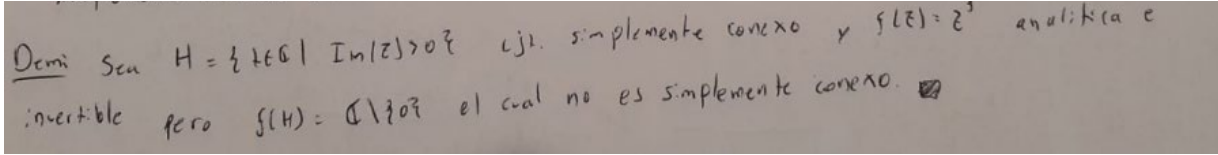 Dem: Sea H = { z ∈ ℂ | Im(z) > 0 } cj. simplemente conexo y f(z) = z³ analitica e
invertible pero f(H) = ℂ \ {0} el cual no es simplemente conexo.